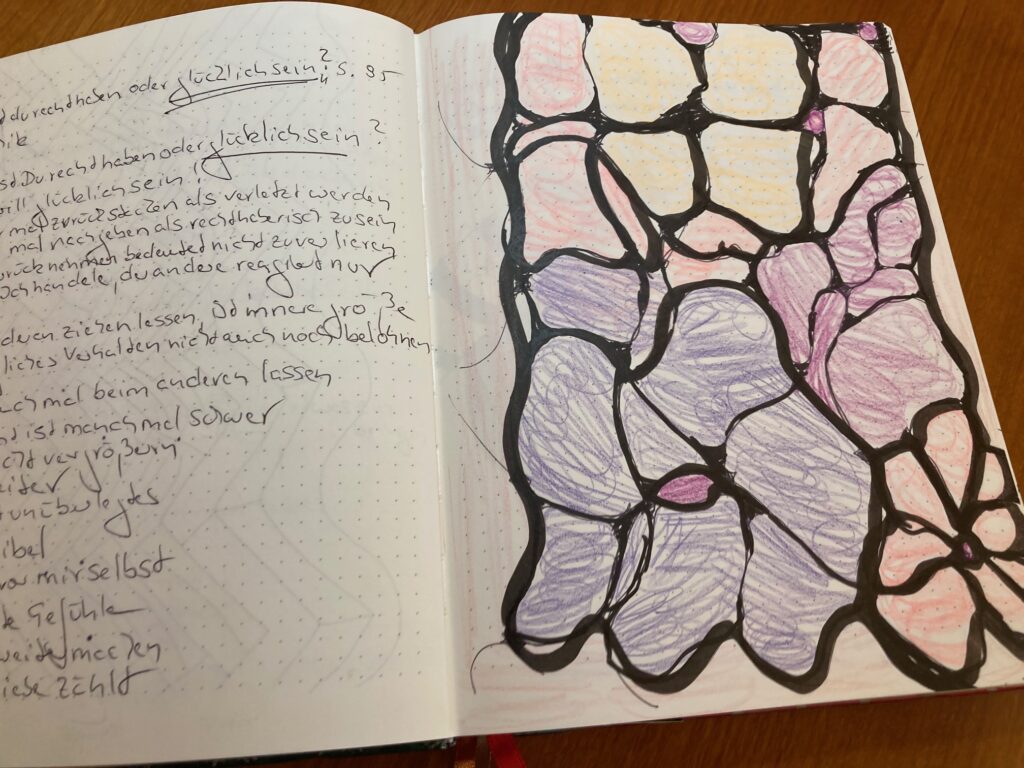 du recht haben oder glücklich sein? S. 95
Du recht haben oder glücklich sein?
will glücklich sein,
mal zurückstecken als verletzt werden
mal nachgeben als rechthaberisch zu sein
zurücknehmen bedeutet nicht zu verlieren
ich handele, du andere reagierst nur
anderen ziehen lassen, ist innere größe
liches Verhalten nicht auch noch belohnen
auch mal beim anderen lassen
ist manchmal schwer
nicht vergrößern
weiter
unüberlegtes
vor mir selbst
Gefühle
vermeiden
Liebe zählt